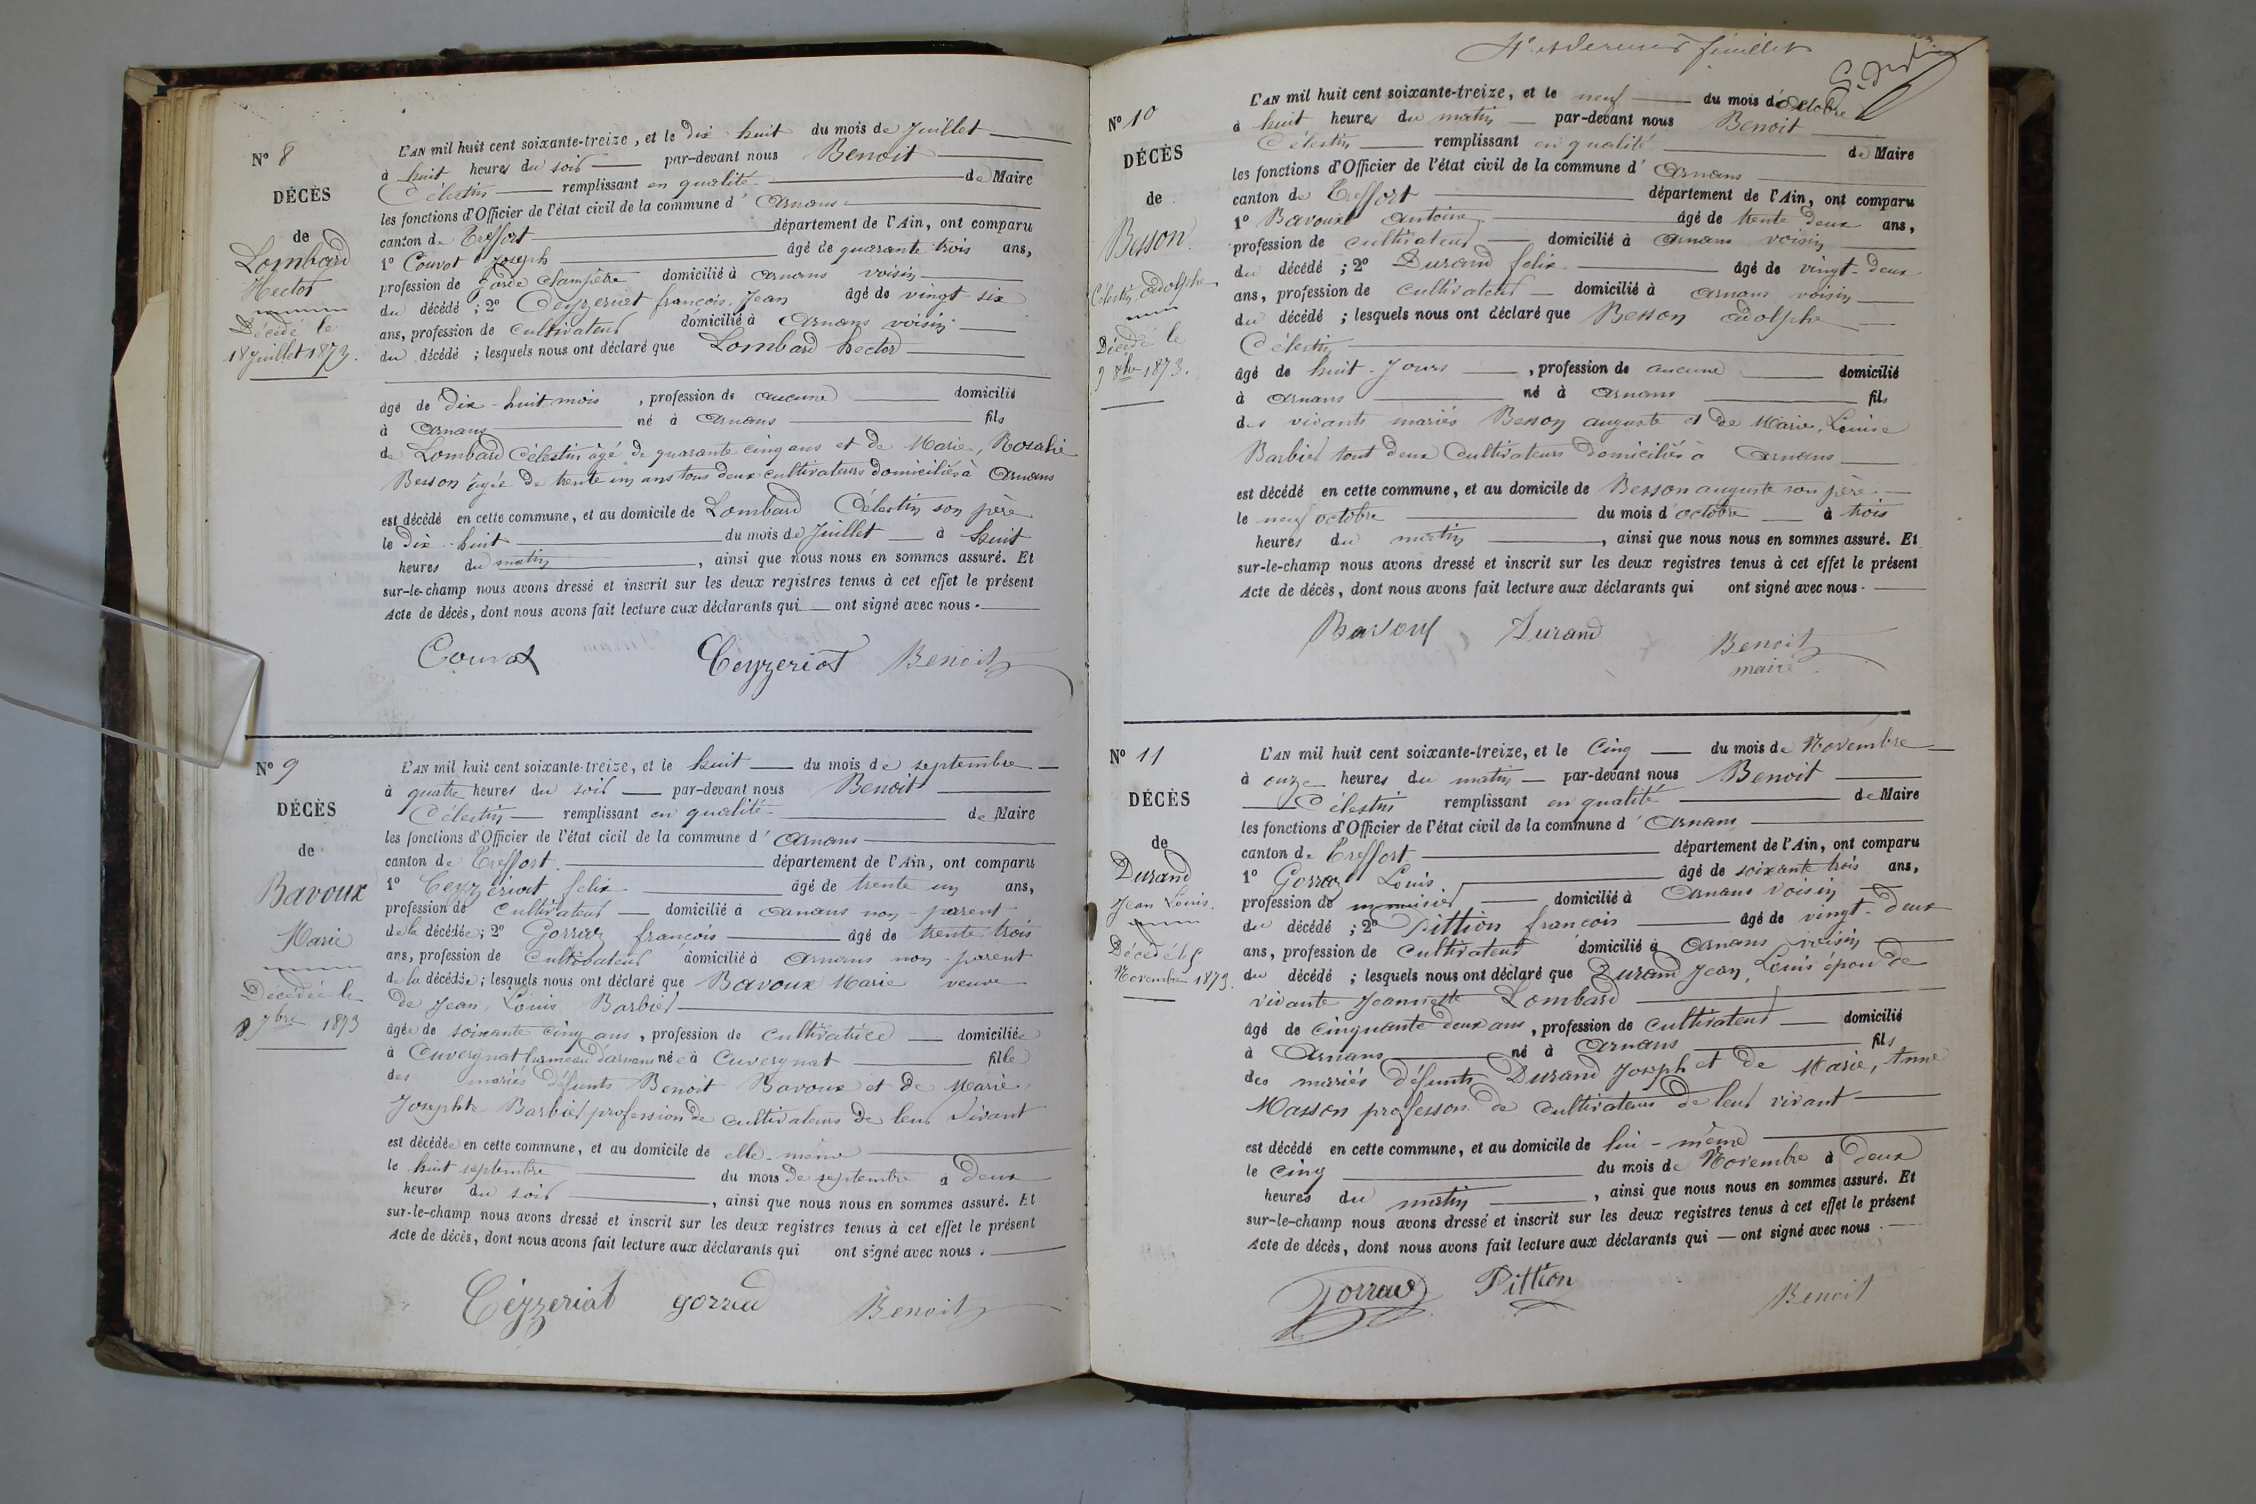 N° 8
DÉCÈS
de
Lombard
Hector
Décédé le
18 Juillet 1873.
L'AN mil huit cent soixante-treize, et le dix huit du mois de Juillet
à huit heures du soir par-devant nous Benoit
Célestin remplissant en qualité de Maire
les fonctions d'Officier de l'état civil de la commune d' Arnans
canton de Treffort département de l'Ain, ont comparu
1° Couvot Joseph âgé de quarante trois ans,
profession de garde champêtre domicilié à Arnans voisin
du décédé ; 2° Ceyzeriat françois, Jean âgé de vingt six
ans, profession de Cultivateur domicilié à Arnans voisin
du décédé ; lesquels nous ont déclaré que Lombard hector
âgé de dix-huit mois, profession de aucune domicilié
à Arnans né à Arnans fils
de Lombard Célestin âgé de quarante cinq ans et de Marie, Rosalie
Besson âgée de trente un ans tous deux cultivateurs domiciliés à Arnans
est décédé en cette commune, et au domicile de Lombard Célestin son père
le dix-huit du mois de Juillet à huit
heures du matin, ainsi que nous nous en sommes assuré. Et
sur-le-champ nous avons dressé et inscrit sur les deux registres tenus à cet effet le présent
Acte de décès, dont nous avons fait lecture aux déclarants qui ont signé avec nous.
Couvot Ceyzeriat Benoit
N° 9
DÉCÈS
de
Bavoux
Marie
Décédée le
8 7bre 1873
L'AN mil huit cent soixante-treize, et le huit du mois de septembre
à quatre heures du soir par-devant nous Benoit
Célestin remplissant en qualité de Maire
les fonctions d'Officier de l'état civil de la commune d' Arnans
canton de Treffort département de l'Ain, ont comparu
1° Ceyzeriat felix âgé de trente un ans,
profession de cultivateur domicilié à Arnans non-parent
de la décédée ; 2° Gorraz françois âgé de trente trois
ans, profession de Cultivateur domicilié à Arnans non-parent
de la décédée ; lesquels nous ont déclaré que Bavoux Marie veuve
de Jean, Louis Barbier
âgée de soixante cinq ans, profession de cultivatrice domiciliée
à Cuvergnat hameau d'arnans née à Cuvergnat fille
des mariés défunts Benoit Bavoux et de Marie,
Josephte Barbier profession de cultivateurs de leur vivant
est décédée en cette commune, et au domicile de elle-même
le huit septembre du mois de septembre à deux
heures du soir, ainsi que nous nous en sommes assuré. Et
sur-le-champ nous avons dressé et inscrit sur les deux registres tenus à cet effet le présent
Acte de décès, dont nous avons fait lecture aux déclarants qui ont signé avec nous.
Ceyzeriat Benoit
4e et dernier feuillet
N° 10
DÉCÈS
de
Besson
Célestin Adolphe
Décédé le
9 8bre 1873.
L'AN mil huit cent soixante-treize, et le neuf du mois d'octobre
à huit heures du matin par-devant nous Benoit
Célestin remplissant en qualité de Maire
les fonctions d'Officier de l'état civil de la commune d' Arnans
canton de Treffort département de l'Ain, ont comparu
1° Bavoux Antoine âgé de trente deux ans,
profession de cultivateur domicilié à Arnans voisin
du décédé ; 2° Durand felix âgé de vingt-deux
ans, profession de cultivateur domicilié à Arnans voisin
du décédé ; lesquels nous ont déclaré que Besson adolphe
Célestin
âgé de huit-Jours, profession de aucune domicilié
à Arnans né à Arnans fils
des vivants mariés Besson auguste et de Marie, Louise
Barbier tout deux Cultivateurs domiciliés à Arnans
est décédé en cette commune, et au domicile de Besson auguste son père
le neuf octobre du mois d'octobre à trois
heures du matin, ainsi que nous nous en sommes assuré. Et
sur-le-champ nous avons dressé et inscrit sur les deux registres tenus à cet effet le présent
Acte de décès, dont nous avons fait lecture aux déclarants qui ont signé avec nous.
Bavoux Durand Benoit
maire
N° 11
DÉCÈS
de
Durand
Jean Louis.
Décédé le 5
Novembre 1873.
L'AN mil huit cent soixante-treize, et le Cinq du mois de Novembre
à onze heures du matin par-devant nous Benoit
Célestin remplissant en qualité de Maire
les fonctions d'Officier de l'état civil de la commune d' Arnans
canton de Treffort département de l'Ain, ont comparu
1° Gorraz Louis âgé de soixante trois ans,
profession de domicilié à Arnans voisin
du décédé ; 2° Pittion françois âgé de vingt-deux
ans, profession de Cultivateur domicilié à Arnans voisin
du décédé ; lesquels nous ont déclaré que Durand Jean, Louis époux de
vivante Jeannette Lombard
âgé de cinquante deux ans, profession de cultivateur domicilié
à Arnans né à Arnans fils
des mariés défunts Durand Joseph et de Marie, Anne
Masson professon de cultivateurs de leur vivant
est décédé en cette commune, et au domicile de lui-même
le cinq du mois de Novembre à deux
heures du matin, ainsi que nous nous en sommes assuré. Et
sur-le-champ nous avons dressé et inscrit sur les deux registres tenus à cet effet le présent
Acte de décès, dont nous avons fait lecture aux déclarants qui ont signé avec nous.
Pittion Benoit